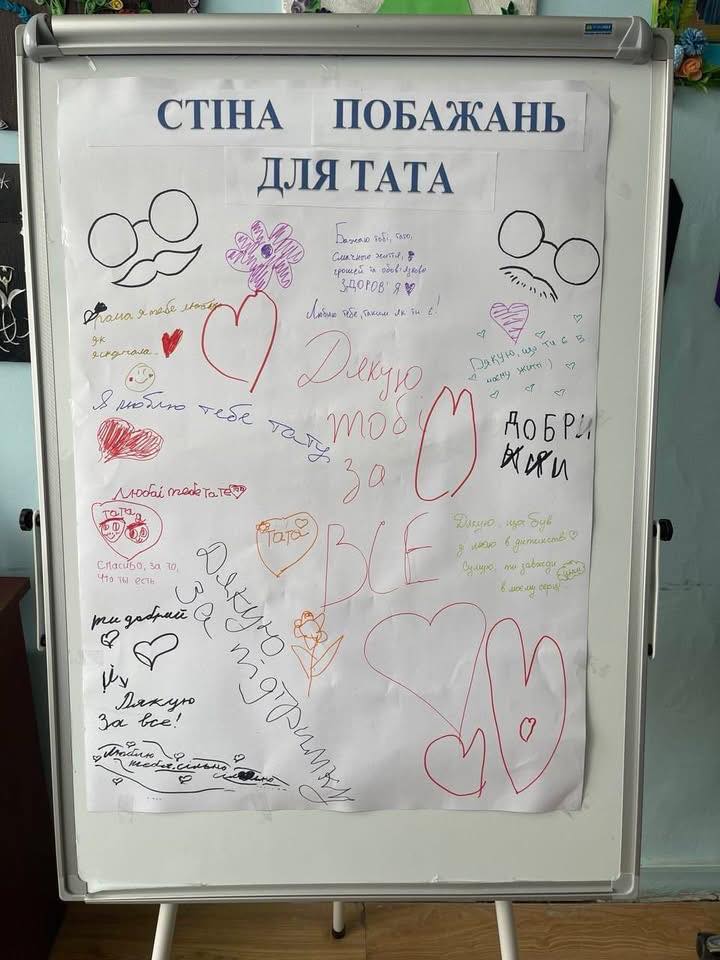 СТІНА ПОБАЖАНЬ
ДЛЯ ТАТА
Бажаю тобі, тато,
смачного життя,
грошей та обов'язково
ЗДОРОВ'Я
Люблю тебе, таким як ти є!
я тебе люблю
як
Дякую, що ти є в
моєму житті)
Дякую
тобі
за
ВСЕ
Я люблю тебе тату
ДОБРИ
Любві тебе тате
тата
Спасибо, за то,
что ты есть
Тата
Дякую, що був
в дитинстві
Сумую, ти завжди
в моєму серці
Дякую
за підтримку
ти добрий
Дякую
За все!
Люблю
тебе сильно